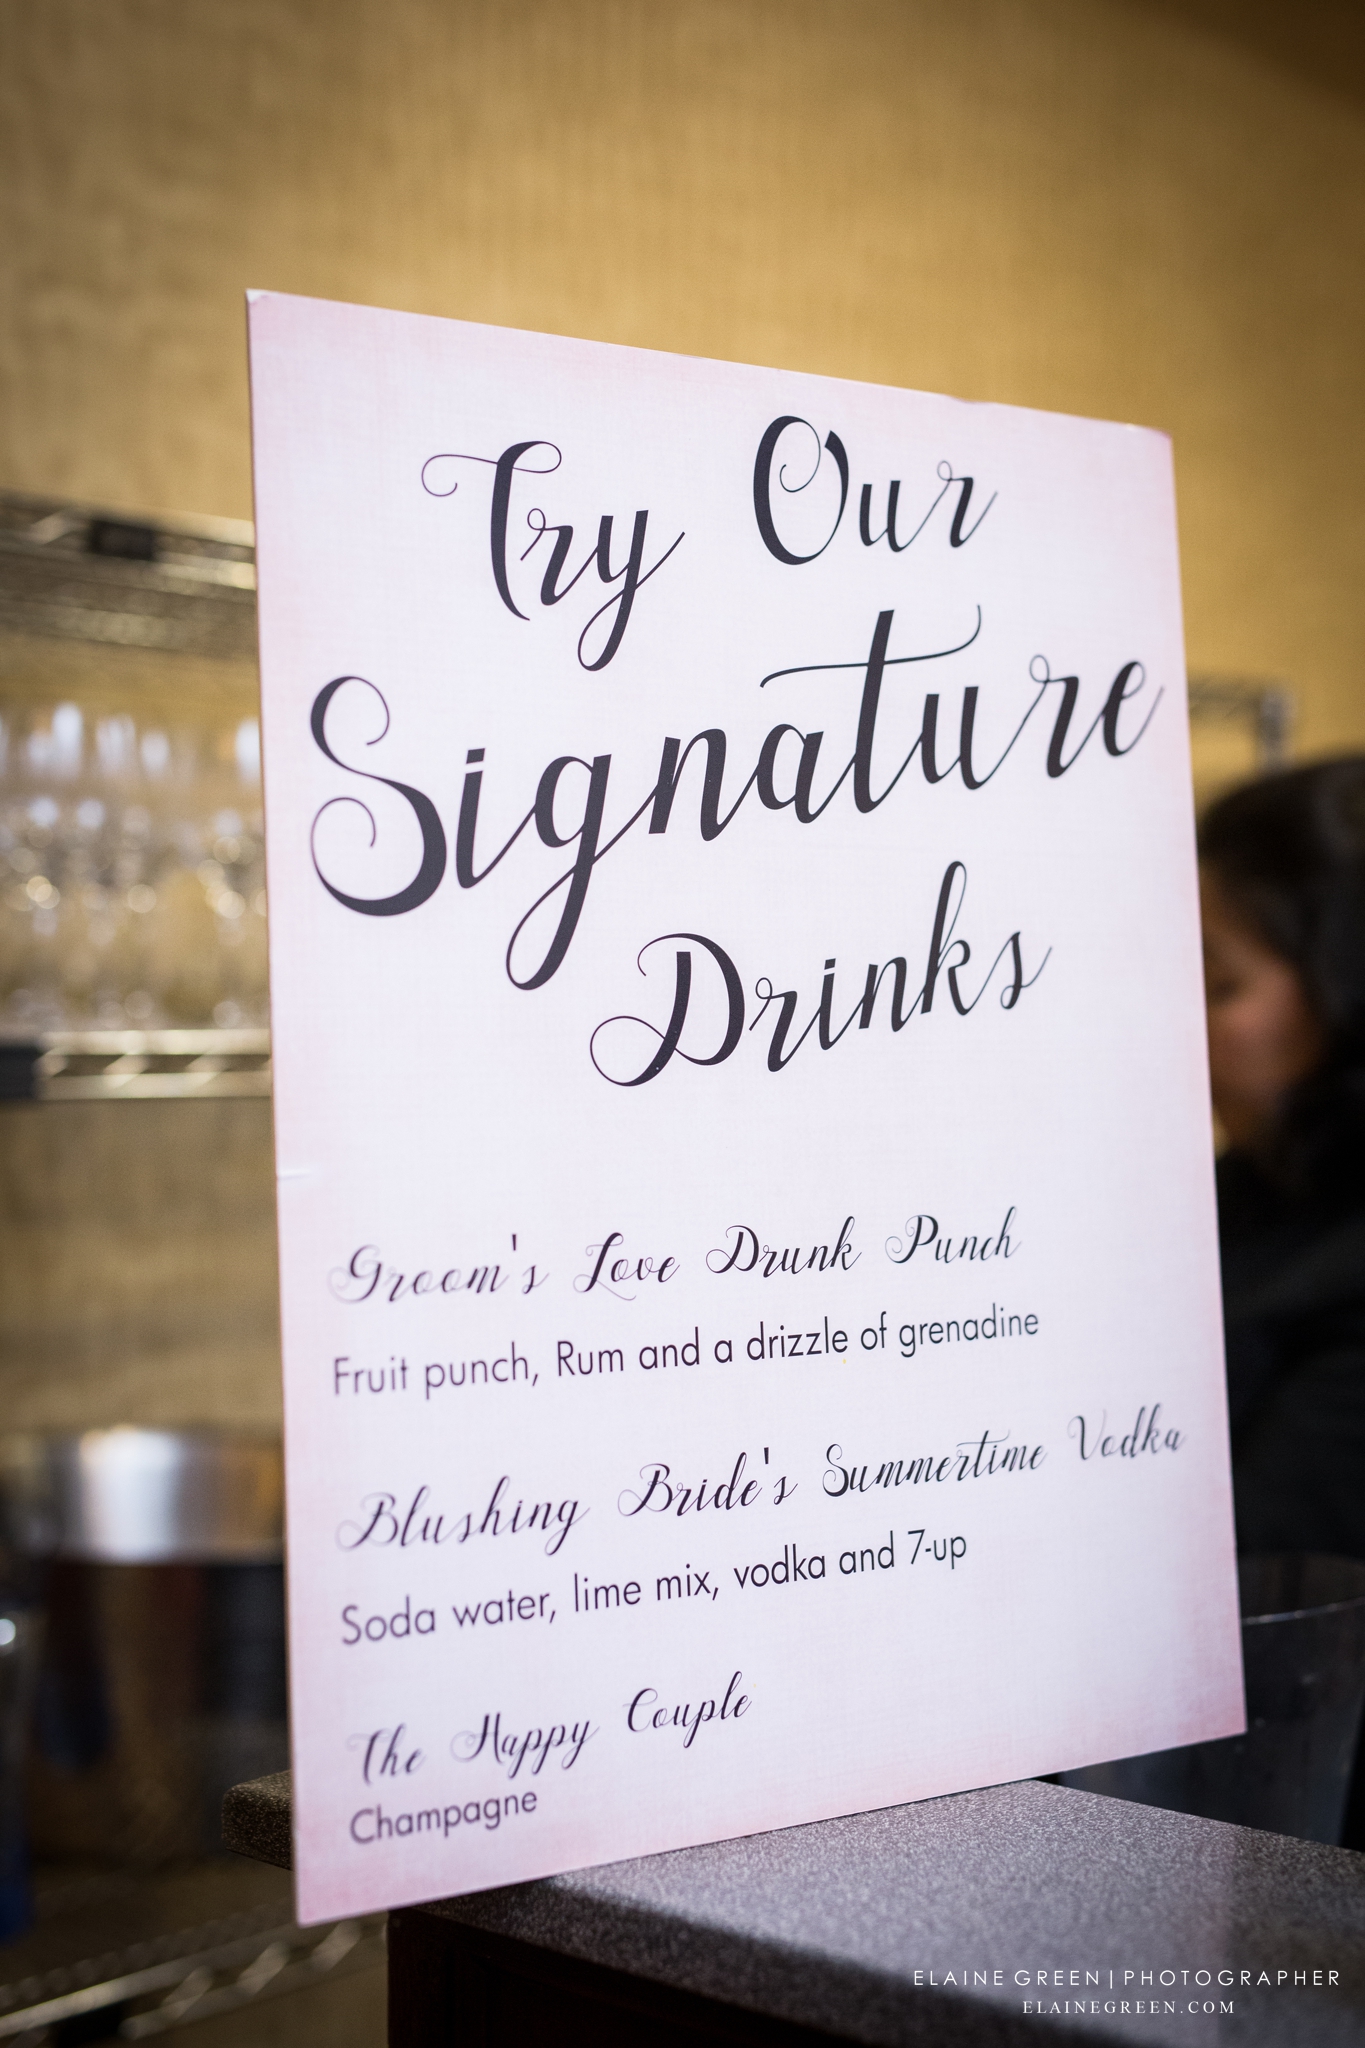 Try Our
Signature
Drinks
Groom's Love Drunk Punch
Fruit punch, Rum and a drizzle of grenadine
Blushing Bride's Summertime Vodka
Soda water, lime mix, vodka and 7-up
The Happy Couple
Champagne
ELAINE GREEN | PHOTOGRAPHER
ELAINEGREEN.COM